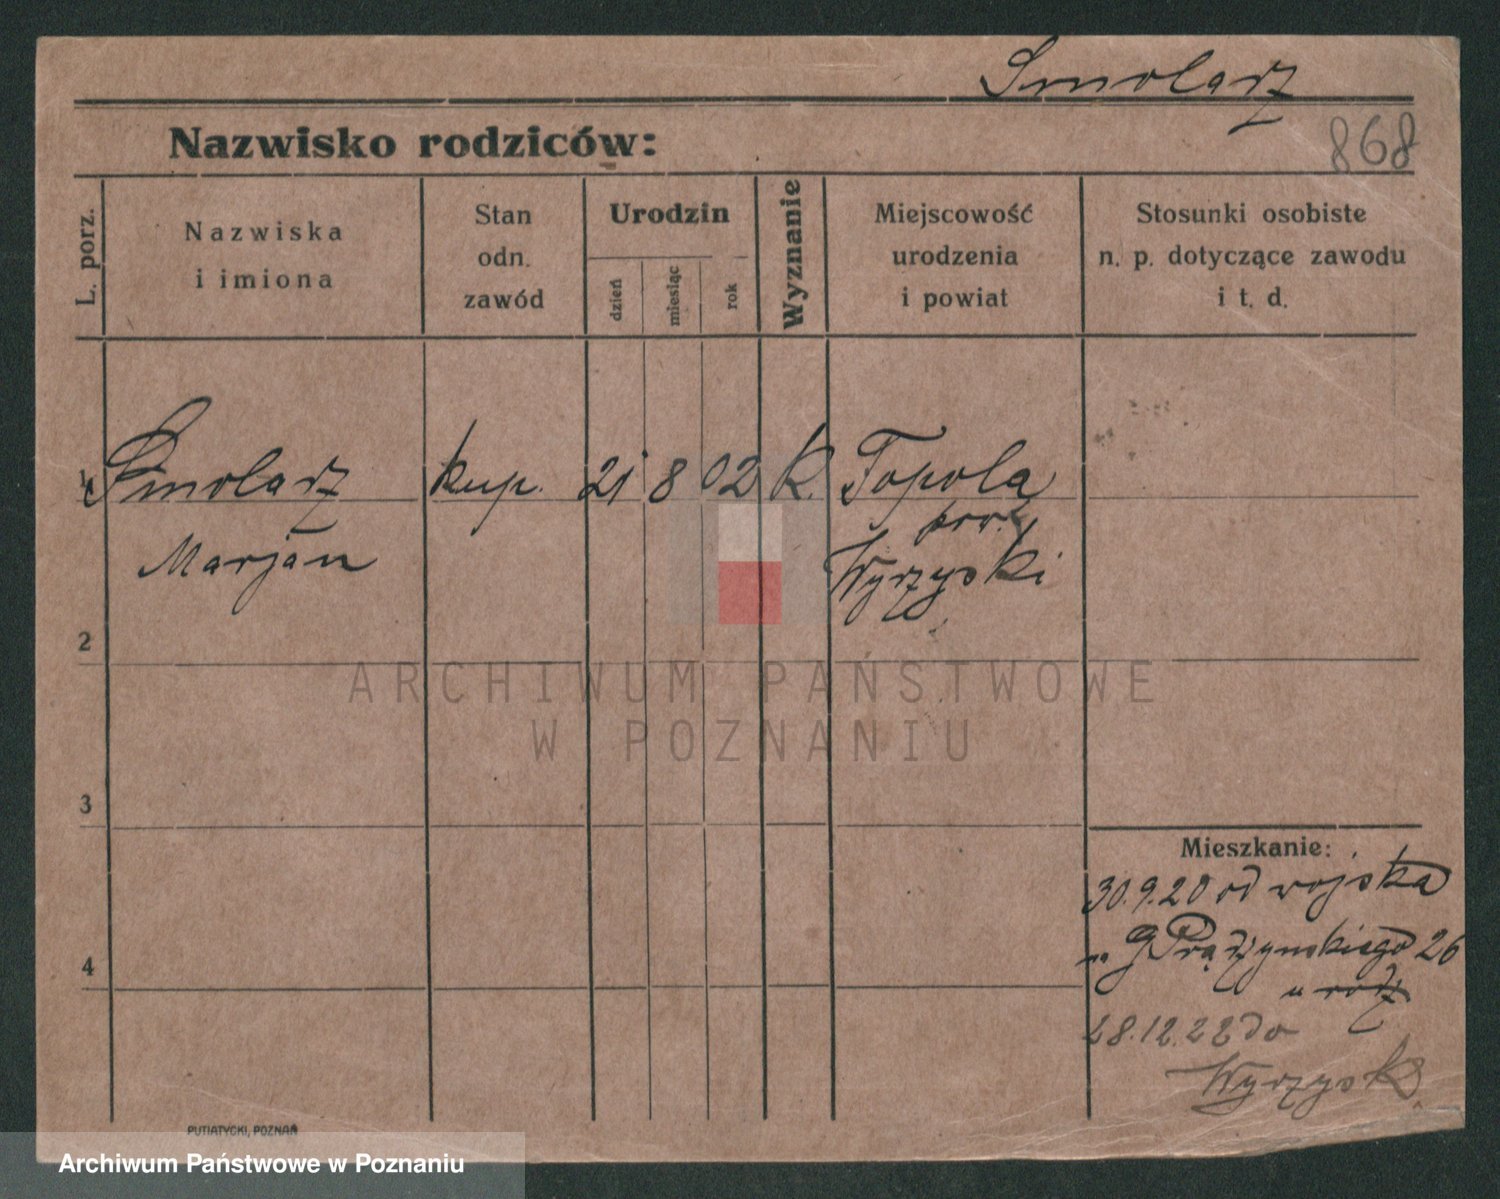 Smolarz
Nazwisko rodziców:
868
L. porz.
Nazwiska
i imiona
Stan
odn.
zawód
Urodzin
dzień
miesiąc
rok
Wyznanie
Miejscowość
urodzenia
i powiat
Stosunki osobiste
n. p. dotyczące zawodu
i t. d.
1 Smolarz kup. 21 8 02 K. Topola
pow.
Marjan Wyrzyski
2
ARCHIWUM PAŃSTWOWE
W POZNANIU
3
Mieszkanie:
30.9.20 od wojska
G Prądzyńskiego 26
u rodz
4
28.12.22 do
Wyrzysk
PUTIATYCKI, POZNAŃ
Archiwum Państwowe w Poznaniu